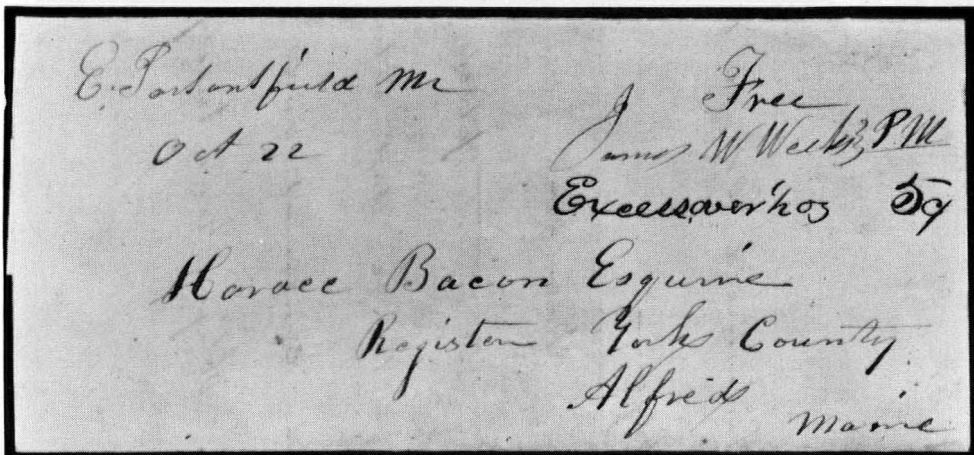 E. Parsonsfield Me
Oct 22
Free
James W Weeks, P M
Excess over ½ oz 5c
Horace Bacon Esquire
Register York County
Alfred
Maine